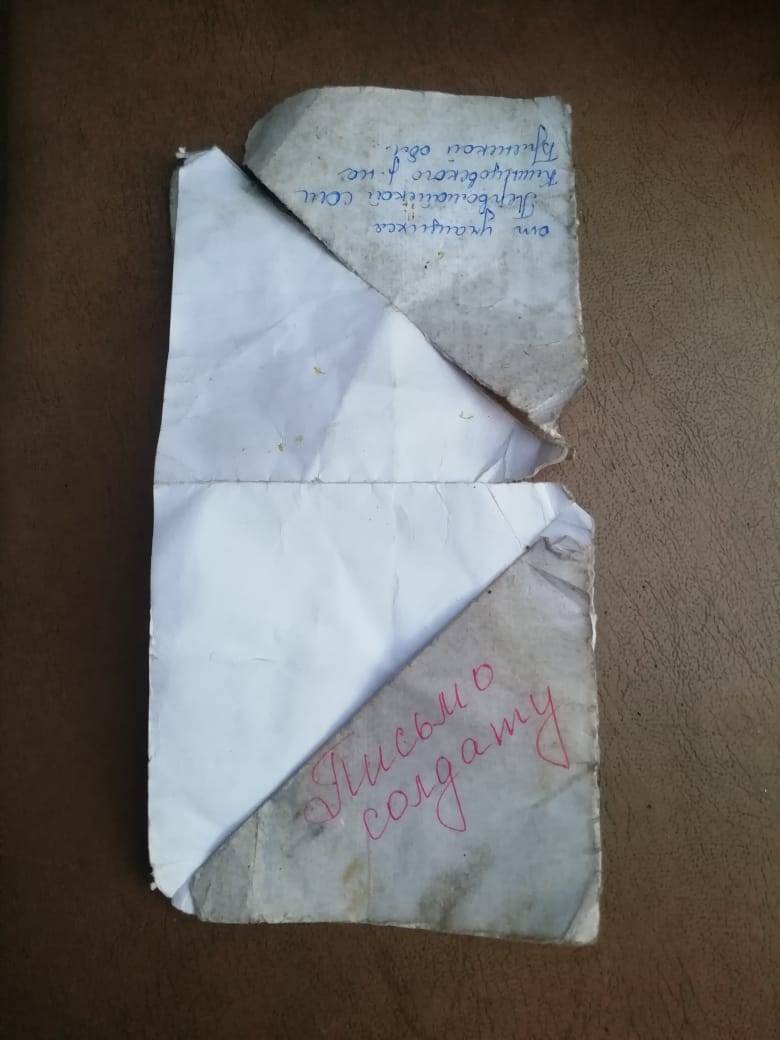 от учащихся
Первомайской сош
Клинцовского р-на
Брянской обл.
Письмо
солдату